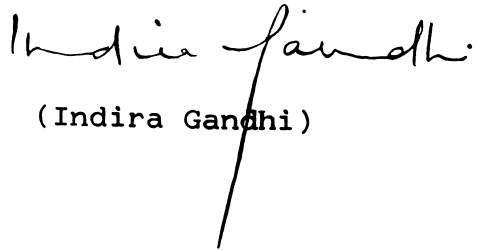 Indira Gandhi
(Indira Gandhi)